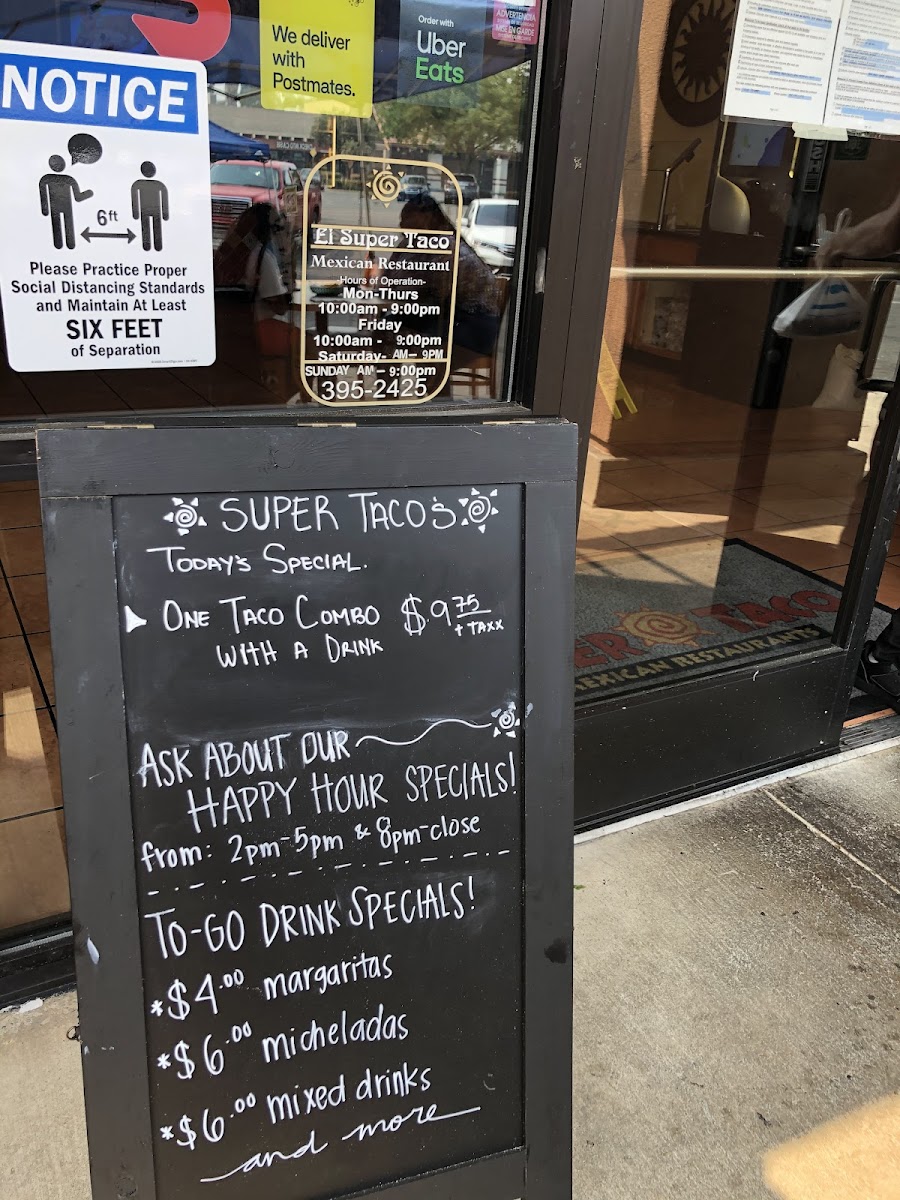 NOTICE
6ft
Please Practice Proper
Social Distancing Standards
and Maintain At Least
SIX FEET
of Separation
We deliver
with
Postmates.
Order with
Uber
Eats
ADVERTENCIA
El Super Taco
Mexican Restaurant
-Hours of Operation-
Mon-Thurs
10:00am - 9:00pm
Friday
10:00am - 9:00pm
Saturday- AM- 9PM
SUNDAY AM- 9:00pm
395-2425
SUPER TACO's
TODAY'S SPECIAL.
ONE TACO COMBO $9.75
+ TAXX
WITH A DRINK
ASK ABOUT OUR
HAPPY HOUR SPECIALS!
from: 2pm-5pm & 8pm-close
TO-GO DRINK SPECIALS!
*$4.00 margaritas
*$6.00 micheladas
*$6.00 mixed drinks
and more
ER TACO
MEXICAN RESTAURANTS